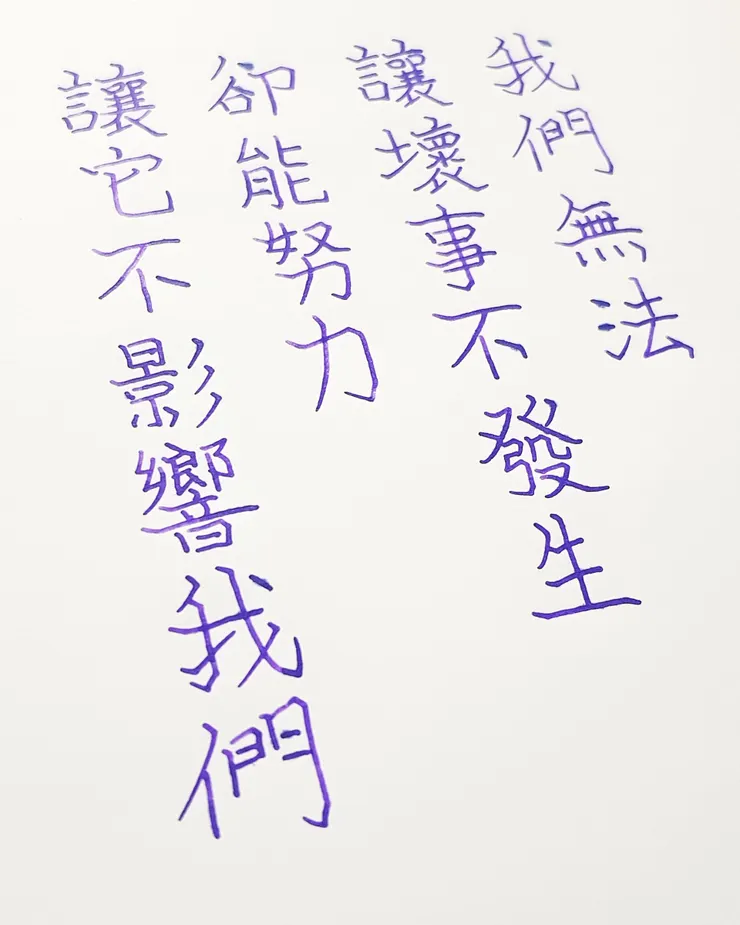 我們無法
讓壞事不發生
卻能努力
讓它不影響我們